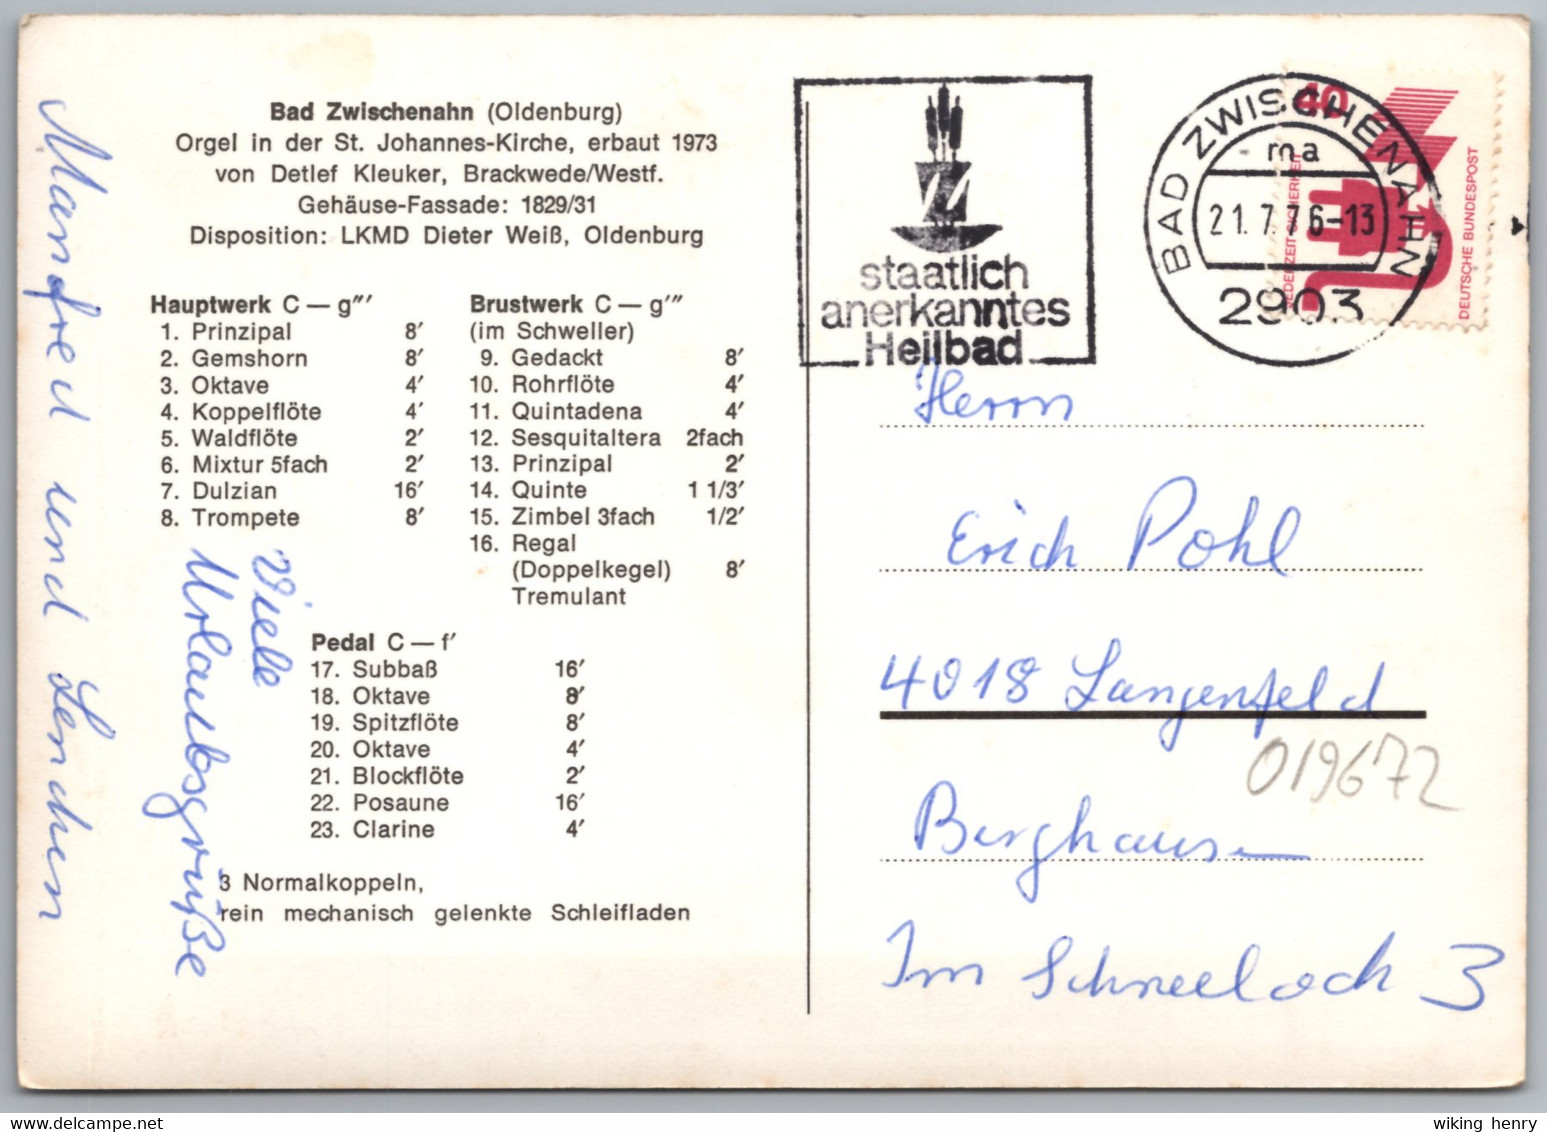 Bad Zwischenahn (Oldenburg)
Orgel in der St. Johannes-Kirche, erbaut 1973
von Detlef Kleuker, Brackwede/Westf.
Gehäuse-Fassade: 1829/31
Disposition: LKMD Dieter Weiß, Oldenburg
Hauptwerk C — g‴
1. Prinzipal 8′
2. Gemshorn 8′
3. Oktave 4′
4. Koppelflöte 4′
5. Waldflöte 2′
6. Mixtur 5fach 2′
7. Dulzian 16′
8. Trompete 8′
Brustwerk C — g‴
(im Schweller)
9. Gedackt 8′
10. Rohrflöte 4′
11. Quintadena 4′
12. Sesquitaltera 2fach
13. Prinzipal 2′
14. Quinte 1 1/3′
15. Zimbel 3fach 1/2′
16. Regal
(Doppelkegel) 8′
Tremulant
Pedal C — f′
17. Subbaß 16′
18. Oktave 8′
19. Spitzflöte 8′
20. Oktave 4′
21. Blockflöte 2′
22. Posaune 16′
23. Clarine 4′
3 Normalkoppeln,
rein mechanisch gelenkte Schleifladen
Viele
Urlaubsgrüße
Manfred und Lenchen
staatlich
anerkanntes
Heilbad
BAD ZWISCHENAHN
ma
21.7.76-13
2903
40
JEDERZEIT SICHERHEIT
DEUTSCHE BUNDESPOST
Herrn
Erich Pohl
4018 Langenfeld
019672
Berghausen
Im Schneeloch 3
wiking henry